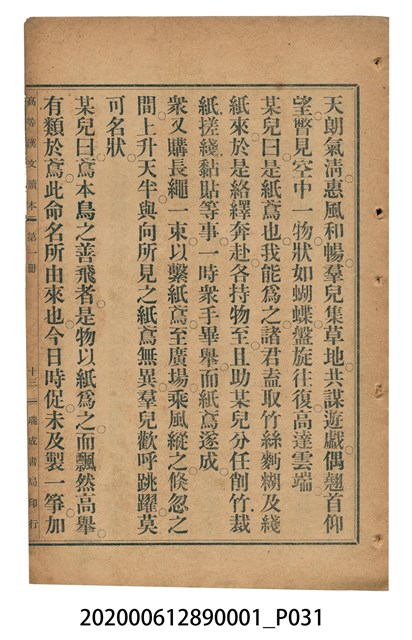 天朗氣淸惠風和暢羣兒集草地共謀遊戲偶翹首仰
望瞥見空中一物狀如蝴蝶盤旋往復高達雲端
某兒曰是紙鳶也我能爲之諸君盍取竹絲麪糊及綫
紙來於是絡繹奔赴各持物至且助某兒分任削竹裁
紙搓綫黏貼等事一時衆手畢舉而紙鳶遂成
衆又購長繩一束以繫紙鳶至廣場乘風縱之倐忽之
間上升天半與向所見之紙鳶無異羣兒歡呼跳躍莫
可名狀
某兒曰鳶本鳥之善飛者是物以紙爲之而飄然高舉
有類於鳶此命名所由來也今日時促未及製一箏加
高等漢文讀本 第一冊 十三 瑞成書局印行
202000612890001_P031